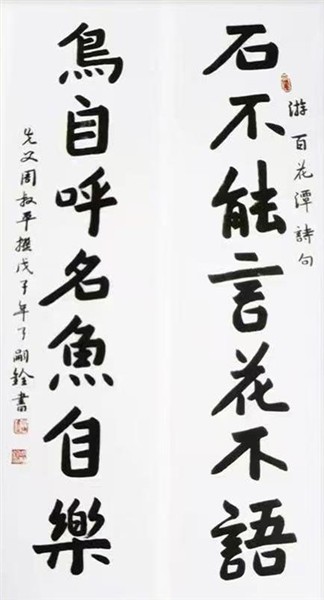 游百花潭詩句
石不能言花不語
鳥自呼名魚自樂
先父周叔平撰戊子年子嗣銓書